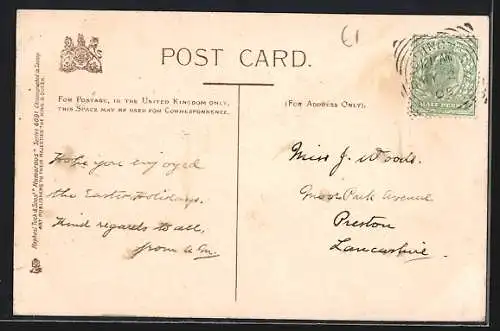 61
POST CARD.
FOR POSTAGE, IN THE UNITED KINGDOM ONLY,
THIS SPACE MAY BE USED FOR CORRESPONDENCE.
(FOR ADDRESS ONLY).
HALF PENNY
Hope you enjoyed
the Easter Holidays.
Kind regards to all,
from
Miss J. Woods.
Moor Park Avenue
Preston
Lancashire.
Raphael Tuck & Sons'
ART PUBLISHERS TO THEIR MAJESTIES THE KING & QUEEN.